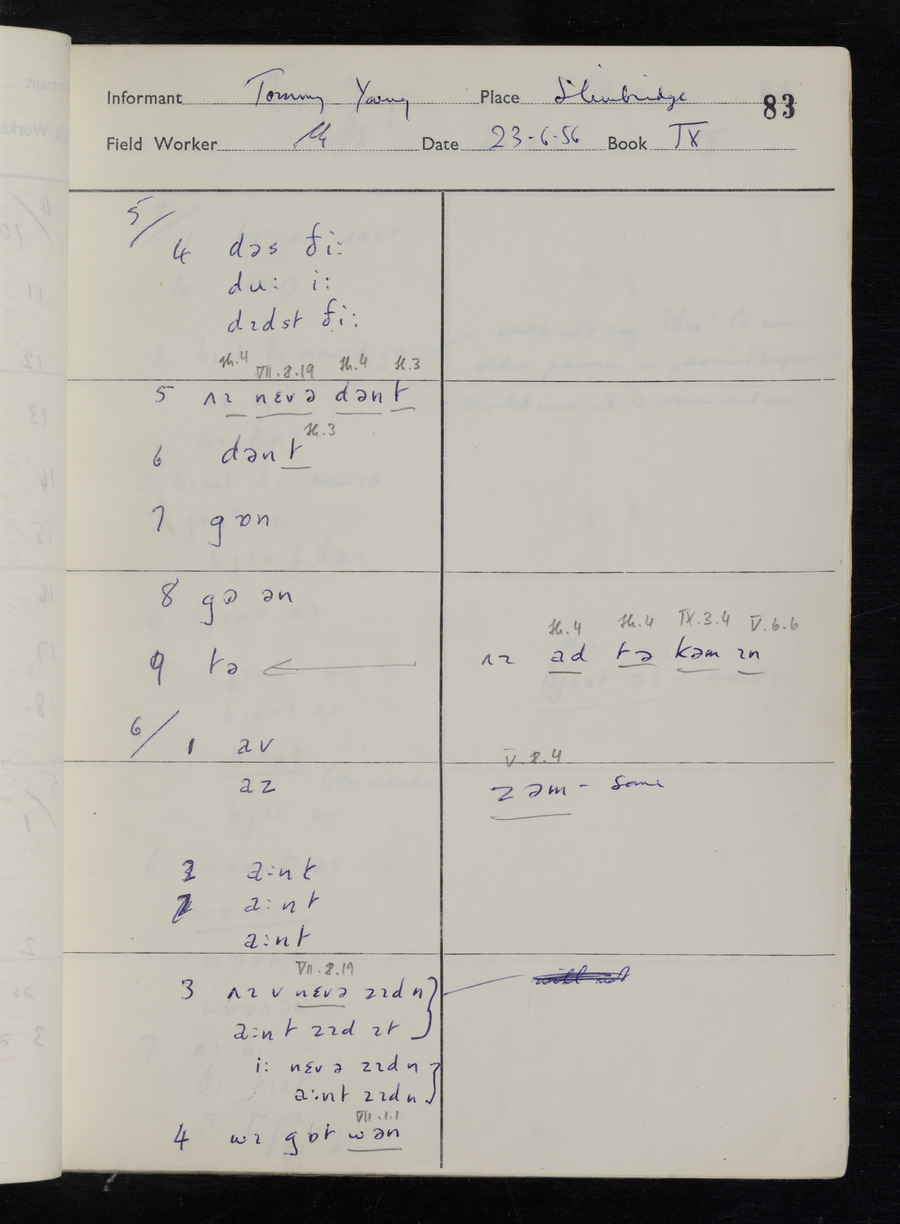 Informant Tommy Young Place Slimbridge 83
Field Worker Date 23-6-56 Book IX
5/
4 dəs ði:
du: i:
dɪdst ði:
sh.4 VII.8.19 sh.4 sh.3
5 ʌɪ nɛvə dənt
sh.3
6 dənt
7 gɒn
8 gɒ ən
sh.4 sh.4 IX.3.4 V.6.6
9 tə ← ʌɪ ad tə kəm ɪn
6/ 1 av
V.8.4
az zəm - some
2 a:nt
a:nt
a:nt
VII.8.19
3 ʌɪ v nɛvə zɪd n
a:nt zɪd ɪt
i: nɛvə zɪd n
a:nt zɪd n
VII.1.1
4 wɪ gɒt wən